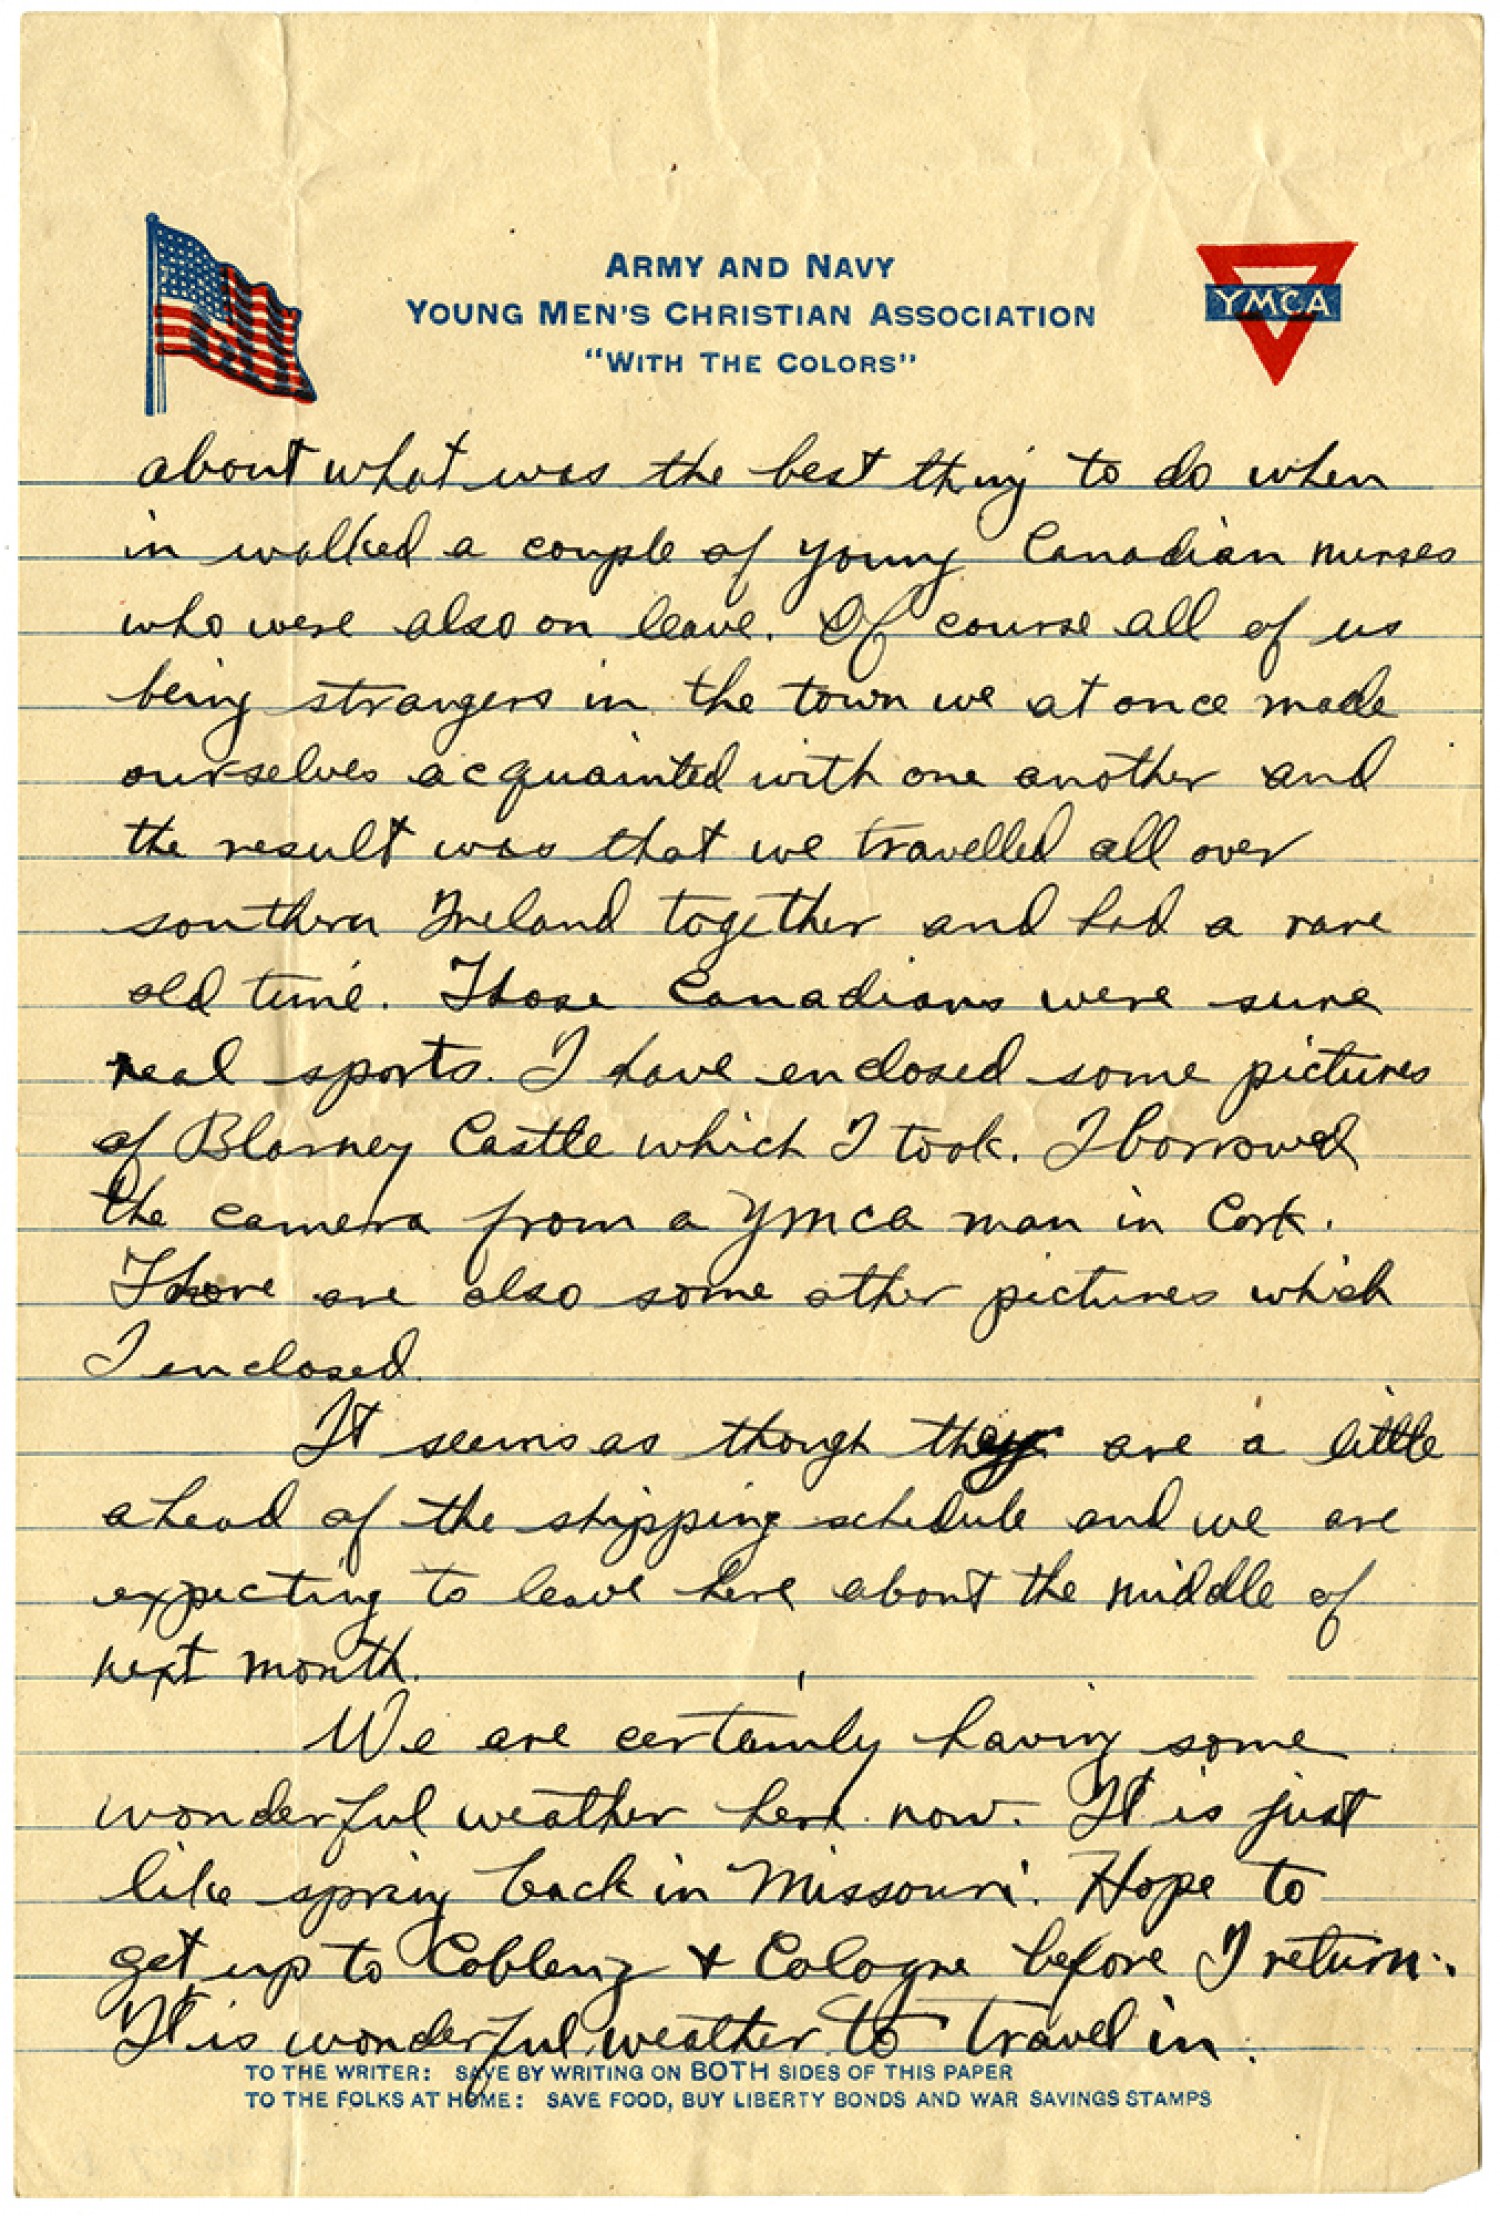 ARMY AND NAVY
YOUNG MEN'S CHRISTIAN ASSOCIATION
"WITH THE COLORS"
YMCA
about what was the best thing to do when
in walked a couple of young Canadian nurses
who were also on leave. Of course all of us
being strangers in the town we at once made
ourselves acquainted with one another and
the result was that we travelled all over
southern Ireland together and had a rare
old time. Those Canadians were sure
real sports. I have enclosed some pictures
of Blarney Castle which I took. I borrowed
the camera from a YMCA man in Cork.
There are also some other pictures which
I enclosed.
It seems as though they are a little
ahead of the shipping schedule and we are
expecting to leave here about the middle of
next month.
We are certainly having some
wonderful weather here now. It is just
like spring back in Missouri. Hope to
get up to Coblenz & Cologne before I return.
It is wonderful weather to travel in.
TO THE WRITER: SAVE BY WRITING ON BOTH SIDES OF THIS PAPER
TO THE FOLKS AT HOME: SAVE FOOD, BUY LIBERTY BONDS AND WAR SAVINGS STAMPS